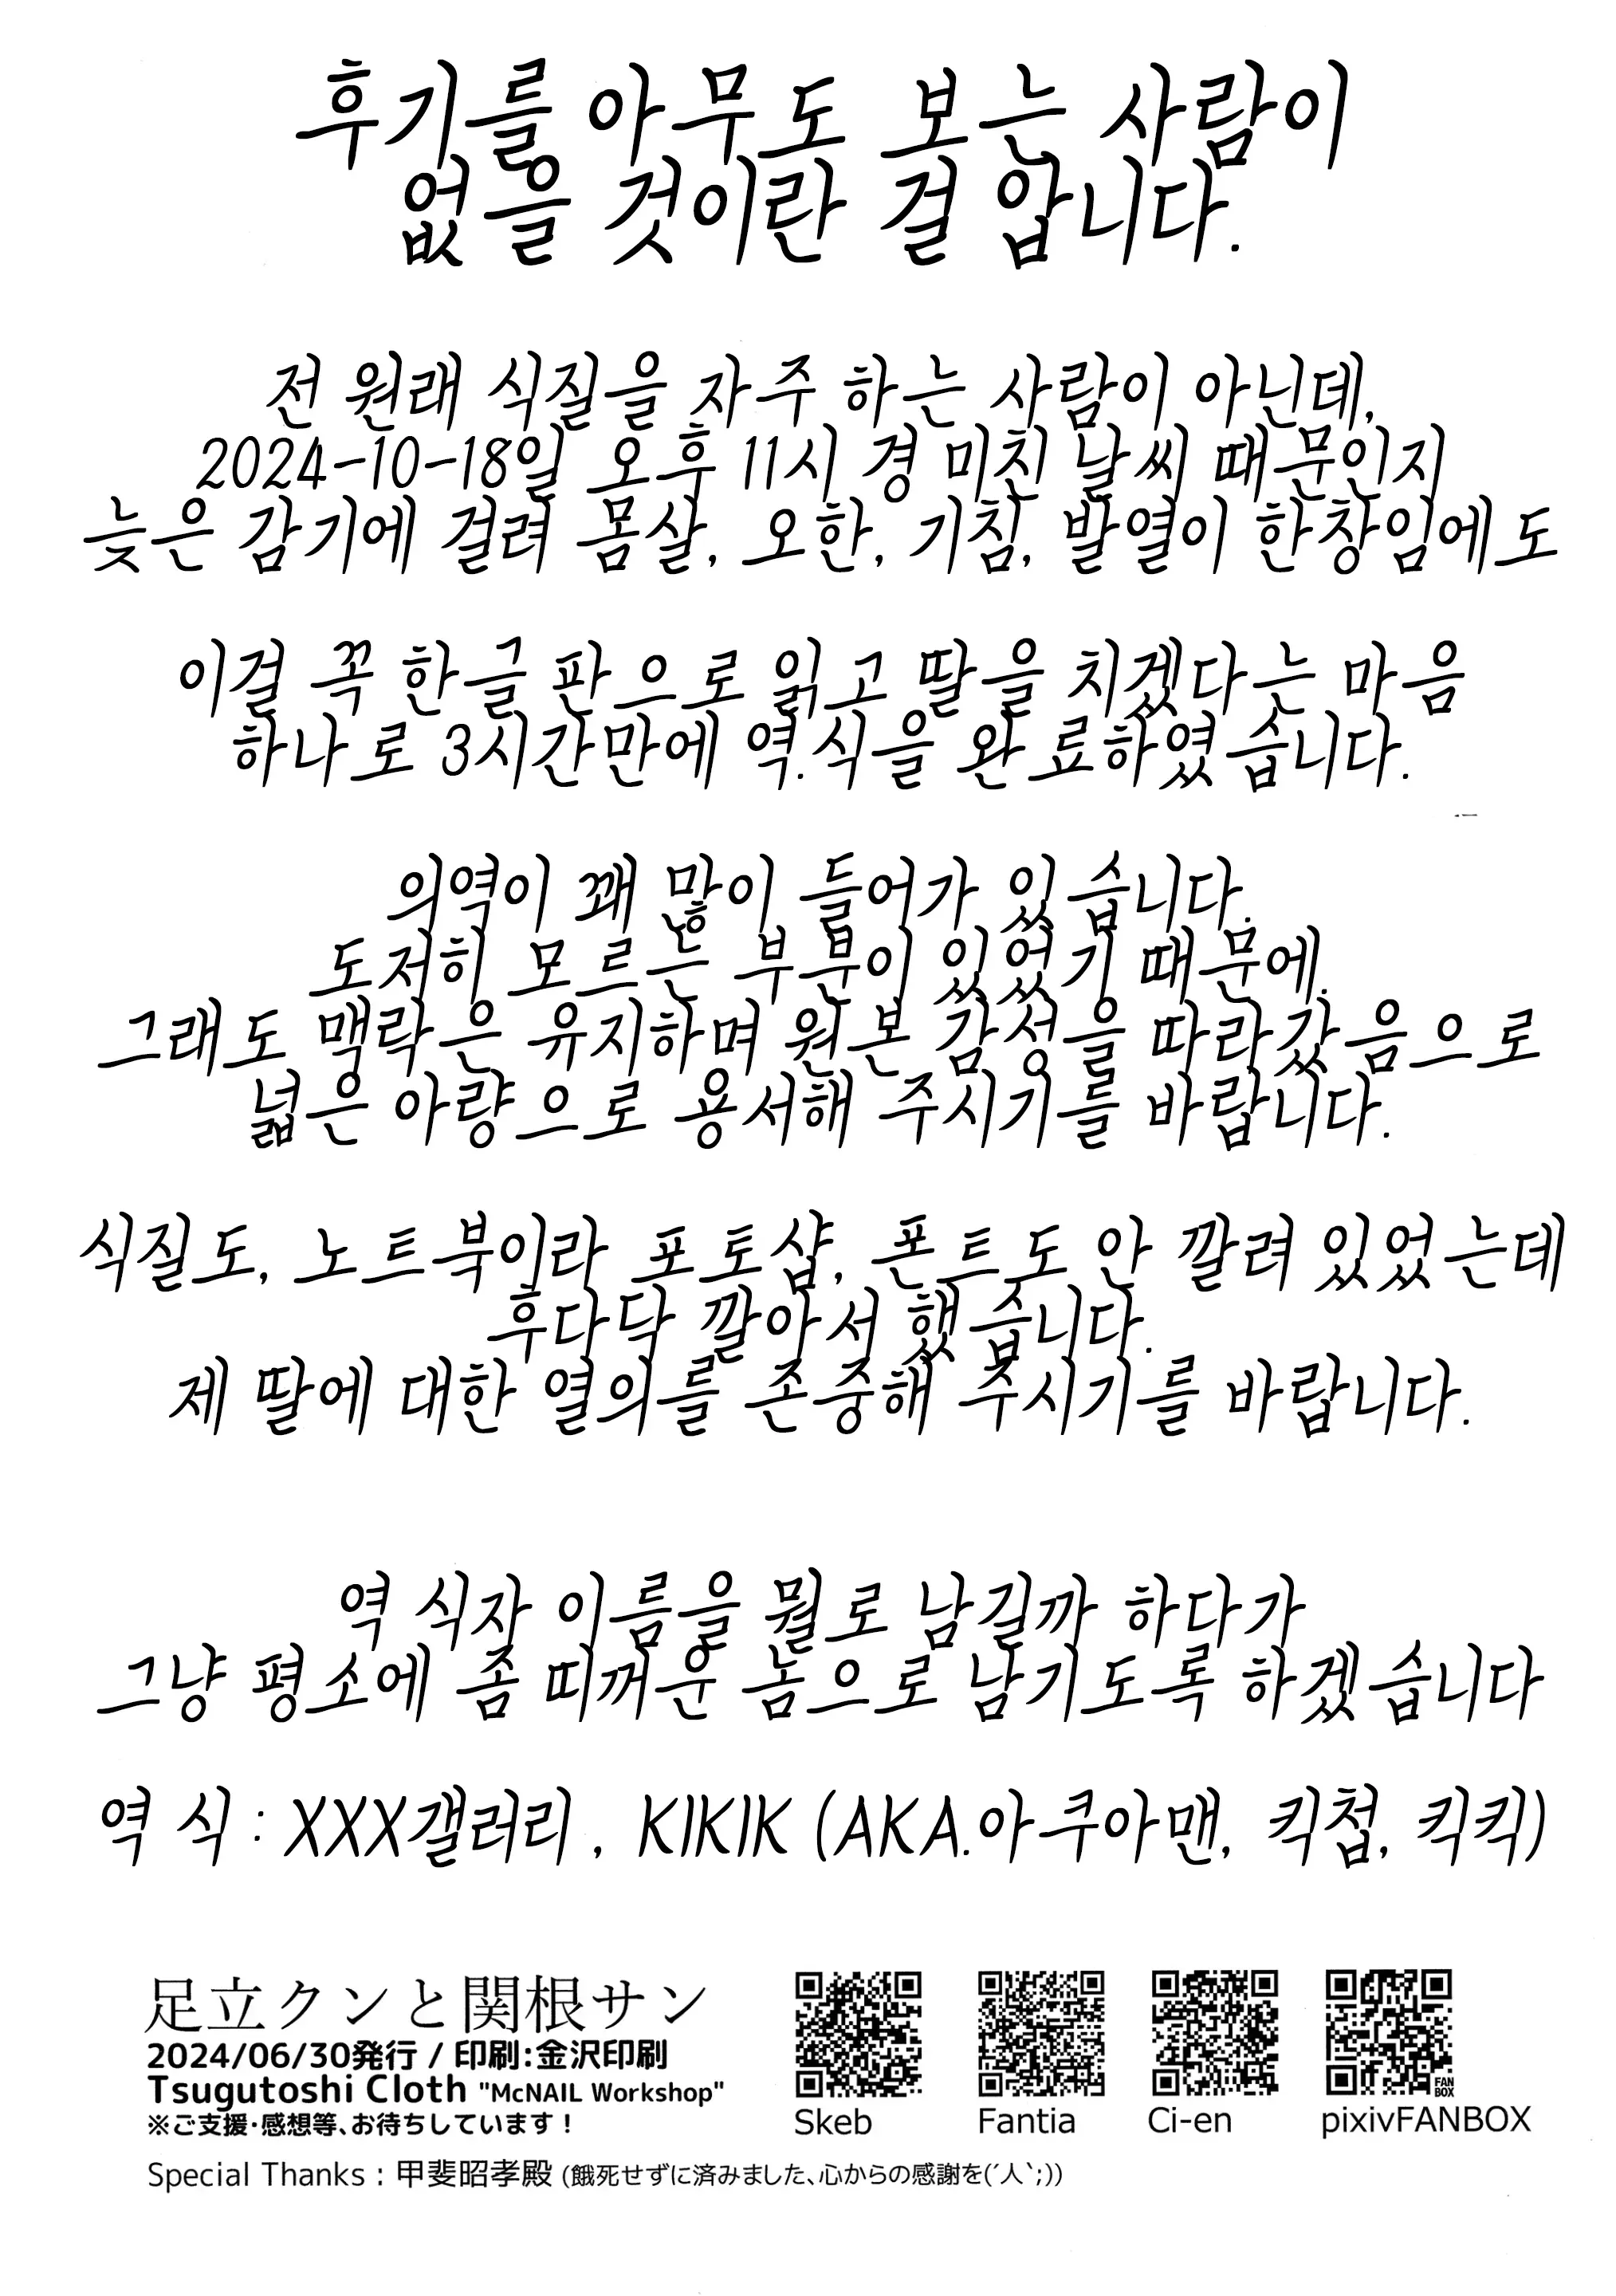 후기를 아무도 보는 사람이
없을 것이란 걸 압니다.
전 원래 식질을 자주 하는 사람이 아닌데,
2024-10-18일 오후 11시 경 미친 날씨 때문인지
늦은 감기에 걸려 몸살, 오한, 기침, 발열이 한창임에도
이걸 꼭 한글 판으로 읽고 딸을 치겠다는 마음
하나로 3시간만에 역.식을 완료하였습니다.
의역이 꽤 많이 들어가 있습니다.
도저히 모르는 부분이 있었기 때문에.
그래도 맥락은 유지하며 원본 감성을 따라갔음으로
넓은 아량으로 용서해 주시기를 바랍니다.
식질도, 노트북이라 포토샵, 폰트도 안 깔려 있었는데
후다닥 깔아서 했습니다.
제 딸에 대한 열의를 존중해 주시기를 바랍니다.
역 식자 이름을 뭘로 남길까 하다가
그냥 평소에 좀 띠꺼운 놈으로 남기도록 하겠습니다
역 식 : XXX갤러리 , KIKIK (AKA.아쿠아맨, 킥첩, 킥킥)
足立クンと関根サン
2024/06/30発行 / 印刷:金沢印刷
Tsugutoshi Cloth "McNAIL Workshop"
※ご支援・感想等、お待ちしています！
Skeb
Fantia
Ci-en
FAN
BOX
pixivFANBOX
Special Thanks : 甲斐昭孝殿 (餓死せずに済みました、心からの感謝を(´人`;))